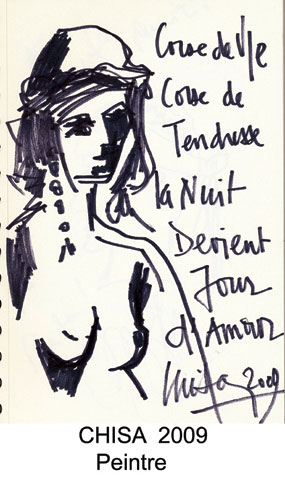 Corse de Vie
Corse de
Tendresse
la Nuit
Devient
Jour
d'Amour
Chisa 2009
CHISA 2009
Peintre